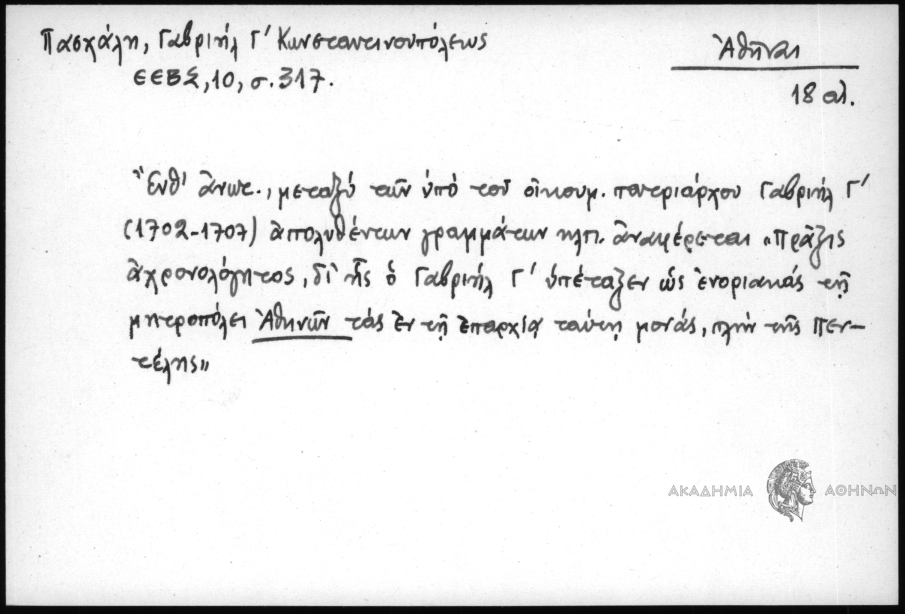 Πασχάλη, Γαβριήλ Γ' Κωνσταντινουπόλεως
ΕΕΒΣ, 10, σ. 317.
Ἀθῆναι
18 αἰ.
Ἔνθ' ἄνωτ., μεταξὺ τῶν ὑπὸ τοῦ οἰκουμ. πατριάρχου Γαβριήλ Γ'
(1702-1707) ἀπολυθέντων γραμμάτων κλπ. ἀναφέρεται «Πρᾶξις
ἀχρονολόγητος, δι' ἧς ὁ Γαβριήλ Γ' ὑπέταξεν ὡς ἐνοριακάς τῇ
μητροπόλει Ἀθηνῶν τάς ἐν τῇ ἐπαρχίᾳ ταύτῃ μονάς, πλήν τῆς Πεν-
τέλης»
ΑΚΑΔΗΜΙΑ ΑΘΗΝΩΝ